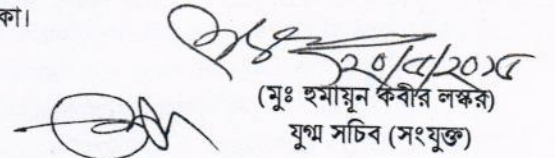 কা।
২০/৫/২০১৫
(মুঃ হুমায়ুন কবীর লস্কর)
যুগ্ম সচিব (সংযুক্ত)